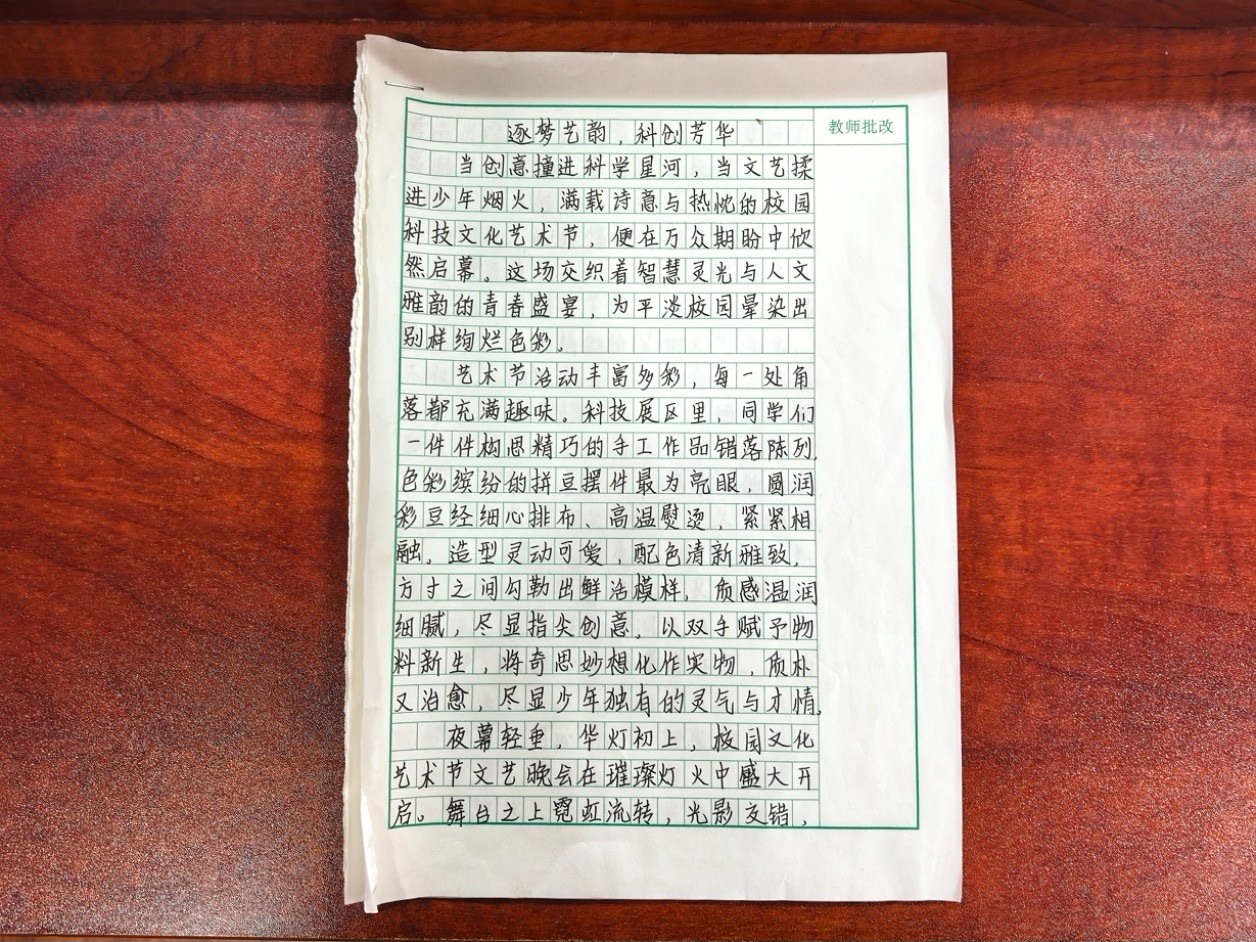 逐梦艺韵，科创芳华
教师批改
当创意撞进科学星河，当文艺揉
进少年烟火，满载诗意与热忱的校园
科技文化艺术节，便在万众期盼中欣
然启幕。这场交织着智慧灵光与人文
雅韵的青春盛宴，为平淡校园晕染出
别样绚烂色彩。
艺术节活动丰富多彩，每一处角
落都充满趣味。科技展区里，同学们
一件件构思精巧的手工作品错落陈列，
色彩缤纷的拼豆摆件最为亮眼，圆润
彩豆经细心排布、高温熨烫，紧紧相
融。造型灵动可爱，配色清新雅致，
方寸之间勾勒出鲜活模样，质感温润
细腻，尽显指尖创意，以双手赋予物
料新生，将奇思妙想化作实物，质朴
又治愈，尽显少年独有的灵气与才情。
夜幕轻垂，华灯初上，校园文化
艺术节文艺晚会在璀璨灯火中盛大开
启。舞台之上霓虹流转，光影交错，